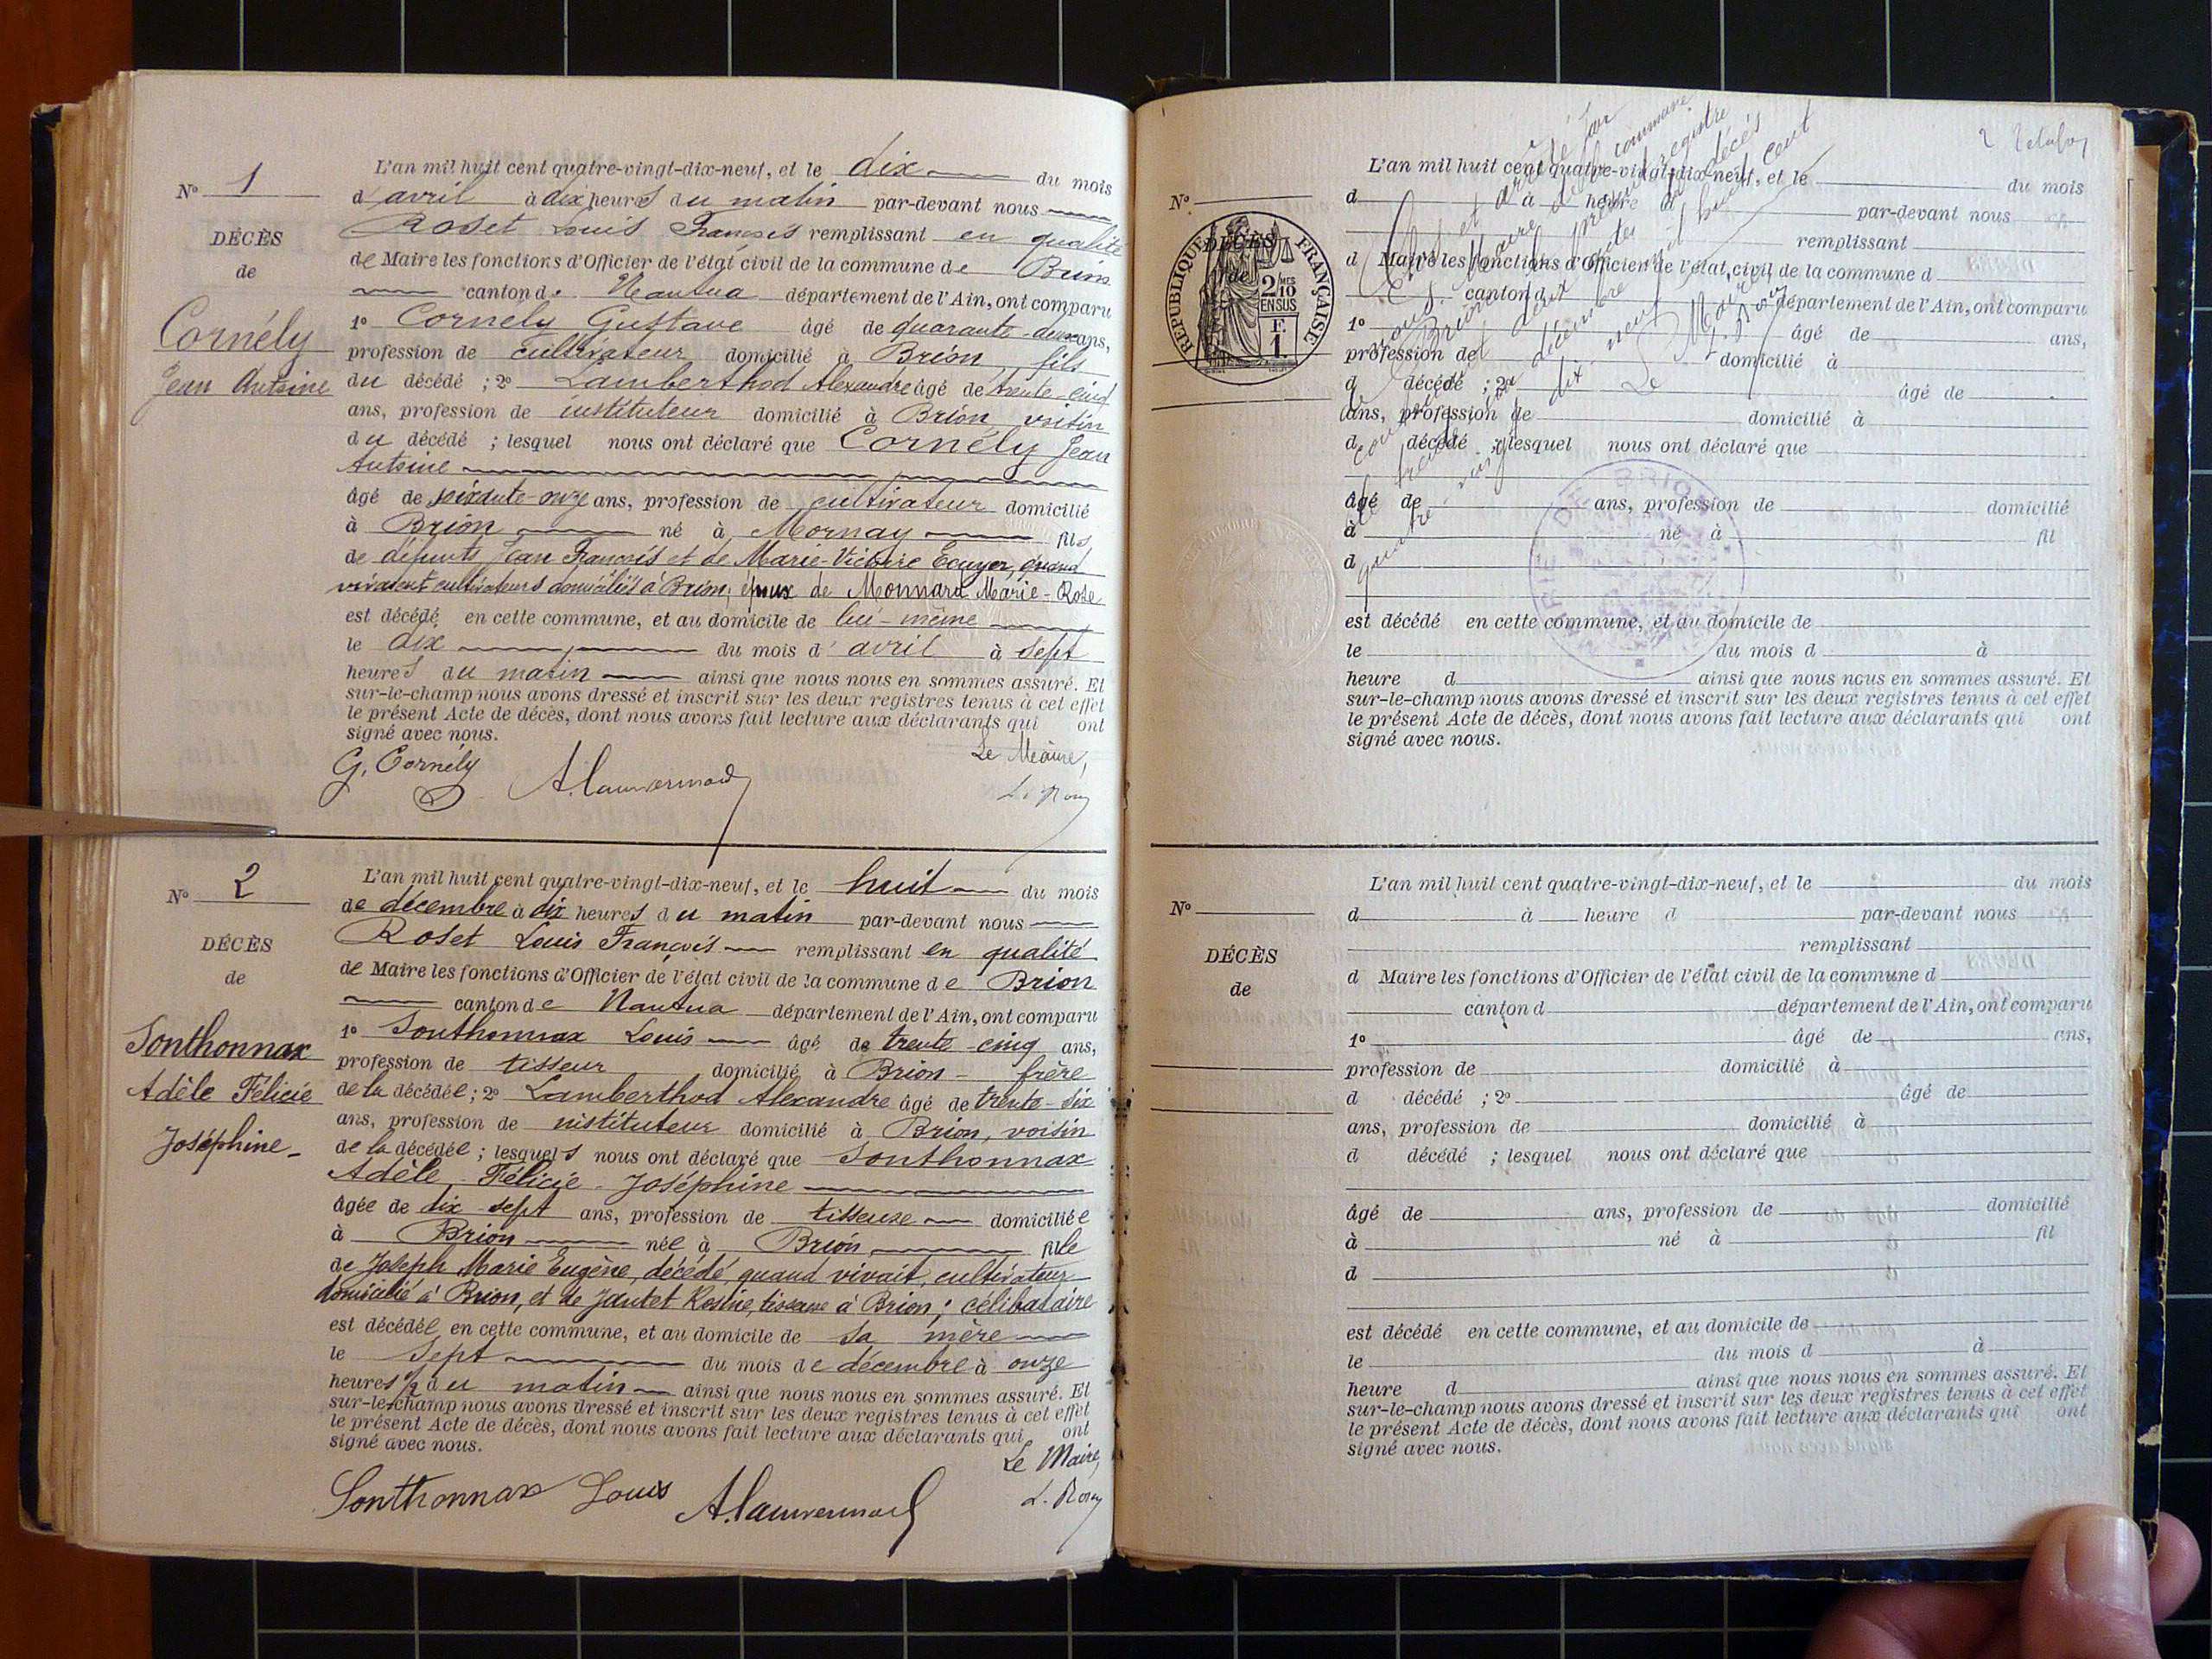 L'an mil huit cent quatre-vingt-dix-neuf, et le dix du mois
N° 1
d'avril à dix heures du matin par-devant nous
Roset Louis François remplissant en qualité
DÉCÈS
de
de Maire les fonctions d'Officier de l'état civil de la commune de Brion
canton de Nantua département de l'Ain, ont comparu
Cornély
Jean Antoine
1° Cornély Gustave âgé de quarante-deux ans,
profession de cultivateur domicilié à Brion, fils
du décédé ; 2° Lamberthod Alexandre âgé de trente-cinq
ans, profession de instituteur domicilié à Brion, voisin
du décédé ; lesquel nous ont déclaré que Cornély Jean
Antoine
âgé de soixante-onze ans, profession de cultivateur domicilié
à Brion né à Mornay fils
de défunts Jean François et de Marie-Victoire Ecuyer, quand
vivaient cultivateurs domiciliés à Brion; époux de Monnard Marie-Rose
est décédé en cette commune, et au domicile de lui-même
le dix du mois d'avril à sept
heures du matin ainsi que nous nous en sommes assuré. Et
sur-le-champ nous avons dressé et inscrit sur les deux registres tenus à cet effet
le présent Acte de décès, dont nous avons fait lecture aux déclarants qui ont
signé avec nous.
G. Cornély
Le Maire,
N° 2
DÉCÈS
de
Sonthonnax
Adèle Félicie
Joséphine
L'an mil huit cent quatre-vingt-dix-neuf, et le huit du mois
de décembre à dix heures du matin par-devant nous
Roset Louis François remplissant en qualité
de Maire les fonctions d'Officier de l'état civil de la commune de Brion
canton de Nantua département de l'Ain, ont comparu
1° Sonthonnax Louis âgé de trente-cinq ans,
profession de tisseur domicilié à Brion - frère
de la décédée ; 2° Lamberthod Alexandre âgé de trente-six
ans, profession de instituteur domicilié à Brion, voisin
de la décédée ; lesquels nous ont déclaré que Sonthonnax
Adèle - Félicie - Joséphine
âgée de dix-sept ans, profession de tisseuse domiciliée
à Brion née à Brion fille
de Joseph Marie Eugène, décédé, quand vivait, cultivateur
domicilié à Brion, et de Jantet Rosine, tisseuse à Brion ; célibataire
est décédée en cette commune, et au domicile de sa mère
le sept du mois de décembre à onze
heures ½ du matin ainsi que nous nous en sommes assuré. Et
sur-le-champ nous avons dressé et inscrit sur les deux registres tenus à cet effet
le présent Acte de décès, dont nous avons fait lecture aux déclarants qui ont
signé avec nous.
Le Maire,
Sonthonnax Louis
L'an mil huit cent quatre-vingt-dix-neuf, et le du mois
N°
d à heure d par-devant nous
remplissant
DÉCÈS
de
RÉPUBLIQUE FRANÇAISE
2 MES
2/10
EN SUS
F.
1.
d Maire les fonctions d'Officier de l'état civil de la commune d
canton d département de l'Ain, ont comparu
1° âgé de ans,
profession de domicilié à
d décédé ; 2° âgé de
ans, profession de domicilié à
d décédé ; lesquel nous ont déclaré que
âgé de ans, profession de domicilié
à né à fil
d
est décédé en cette commune, et au domicile de
le du mois d à
heure d ainsi que nous nous en sommes assuré. Et
sur-le-champ nous avons dressé et inscrit sur les deux registres tenus à cet effet
le présent Acte de décès, dont nous avons fait lecture aux déclarants qui ont
signé avec nous.
Clos et arrêté par
Maire de la commune
Brion le présent registre
deux actes de décès
décembre mil huit cent
quatre-vingt dix-neuf
Le Maire
MAIRIE DE BRION
L'an mil huit cent quatre-vingt-dix-neuf, et le du mois
N°
d à heure d par-devant nous
remplissant
DÉCÈS
de
d Maire les fonctions d'Officier de l'état civil de la commune d
canton d département de l'Ain, ont comparu
1° âgé de ans,
profession de domicilié à
d décédé ; 2° âgé de
ans, profession de domicilié à
d décédé ; lesquel nous ont déclaré que
âgé de ans, profession de domicilié
à né à fil
d
est décédé en cette commune, et au domicile de
le du mois d à
heure d ainsi que nous nous en sommes assuré. Et
sur-le-champ nous avons dressé et inscrit sur les deux registres tenus à cet effet
le présent Acte de décès, dont nous avons fait lecture aux déclarants qui ont
signé avec nous.